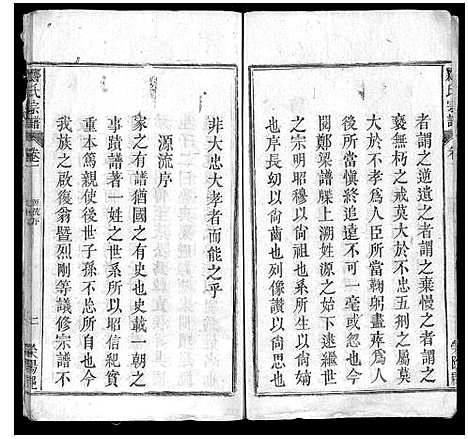 者謂之逆遺之者謂之棄慢之者謂之
褻無朽之戒莫大于不忠五刑之屬莫
大于不孝為人臣所當鞠躬盡瘁為人
後所當慎終追遠不可一毫或忽也今
閱鄭榘譜牒上溯姓源之始下逮繼世
之宗明昭穆尚祖也系所生以尚嗣
也序長幼以尚齒也列像讚以尚㒵
非大忠大孝者而能之乎
源流序
家之有譜猶國之有史也史載一朝之
事蹟譜著一姓之世系所以昭信紀實
重本篤親使後世子孫不忘所自也今
我族之啟後翁暨烈剛等議修宗譜不
氏宗譜
卷一
二
滎陽